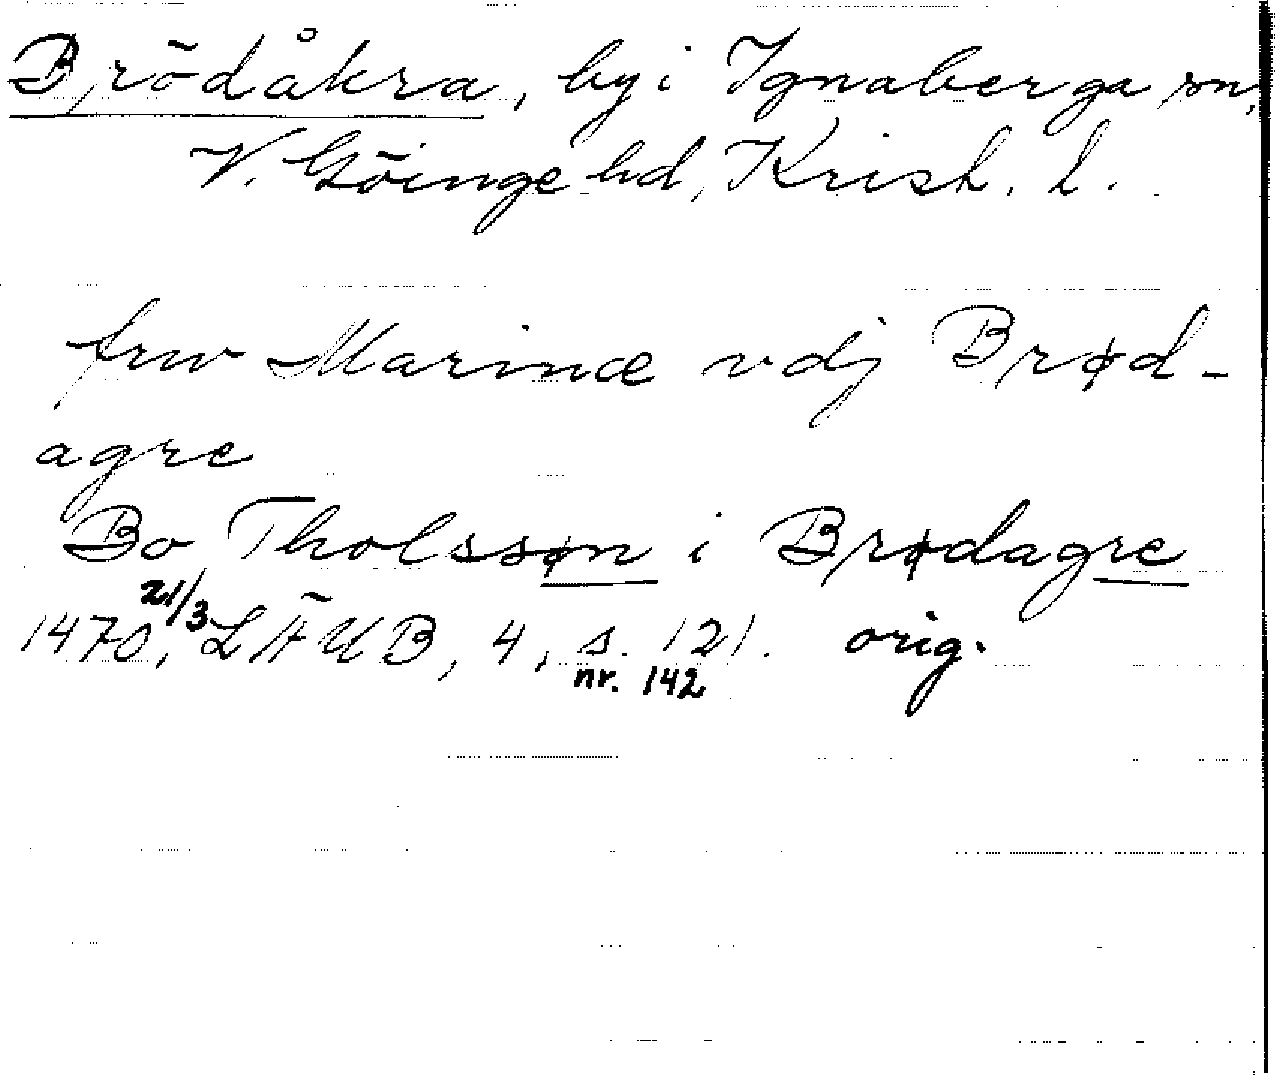 Brödåkra, by i Ignaberga sn,
V. Göinge hd, Krist. l.
frw Marinæ vdj Brød-
agre
Bo Tholssøn i Brødagre
1470 21/3, LÄUB, 4, s. 121. orig.
nr. 142